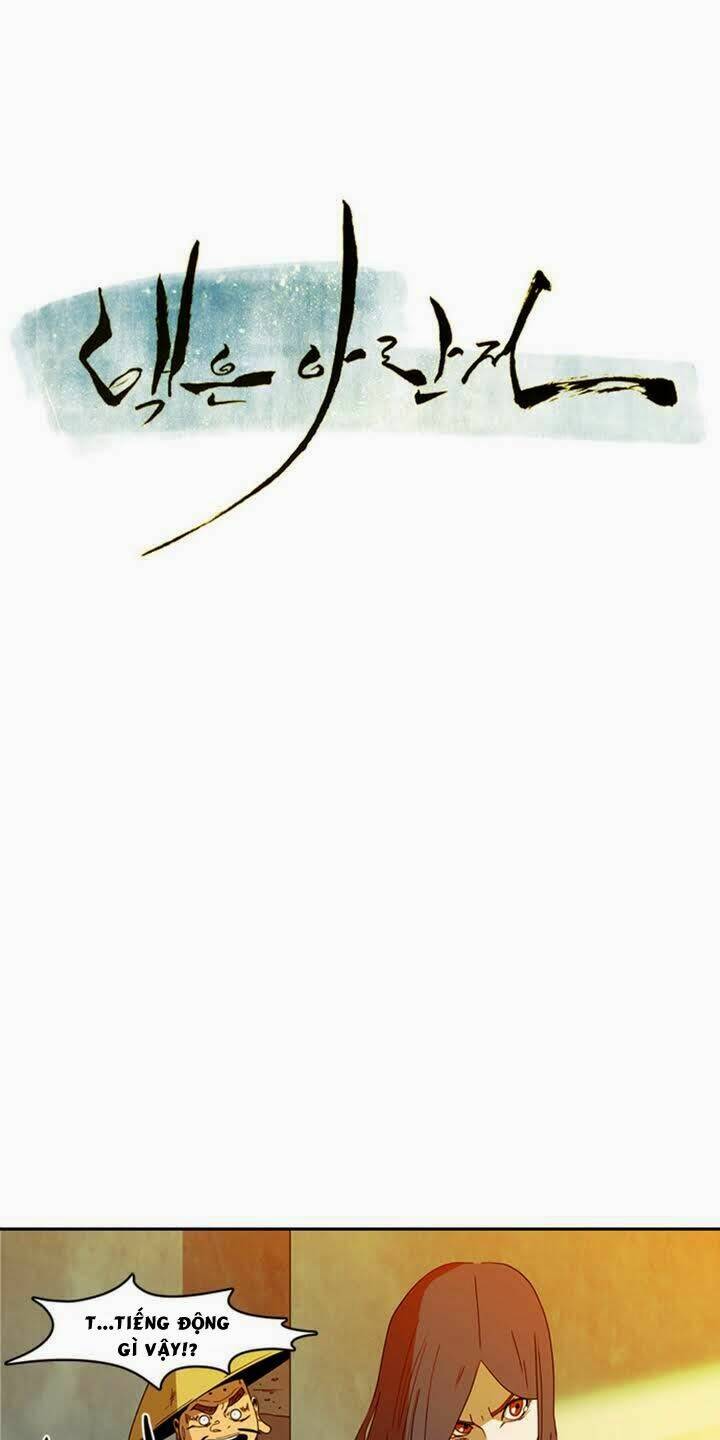 백은 아란전
T...TIẾNG ĐỘNG
GÌ VẬY!?